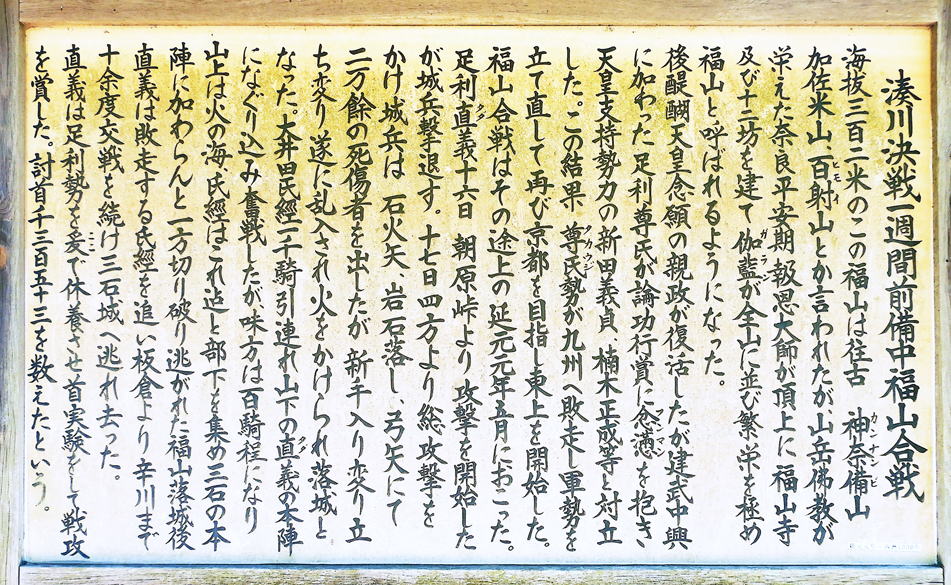 湊川決戦一週間前備中福山合戦
海抜三百二米のこの福山は往古　神奈備山
加佐米山、百射山とか言われたが、山岳佛教が
栄えた奈良平安期　報恩大師が頂上に福山寺
及び十二坊を建て　伽藍が全山に並び繁栄を極め
福山と呼ばれるようになった。
後醍醐天皇念願の親政が復活したが建武中興
に加わった足利尊氏が論功行賞に忿懣を抱き
天皇支持勢力の新田義貞　楠木正成等と対立
した。この結果　尊氏勢が九州へ敗走し軍勢を
立て直して再び京都を目指し東上を開始した。
福山合戦はその途上の延元元年五月におこった。
足利直義十六日　朝原峠より攻撃を開始した
が城兵撃退す。十七日四方より総攻撃を
かけ城兵は　石火矢、岩石落し、弓矢にて
二万餘の死傷者を出したが　新手入り変り立
ち変り遂に乱入され火をかけられ落城と
なった。大井田氏經一千騎引連れ山下の直義の本陣
になぐり込み奮戦したが味方は百騎程になり
山上は火の海　氏經はこれ迄と部下を集め三石の本
陣に加わらんと一方切り破り逃がれた福山落城後
直義は敗走する氏經を追い板倉より辛川まで
十余度交戦を続け三石城へ逃れ去った。
直義は足利勢を爰で休養させ首実験をして戦攻
を賞した。討首千三百五十三を数えたという。